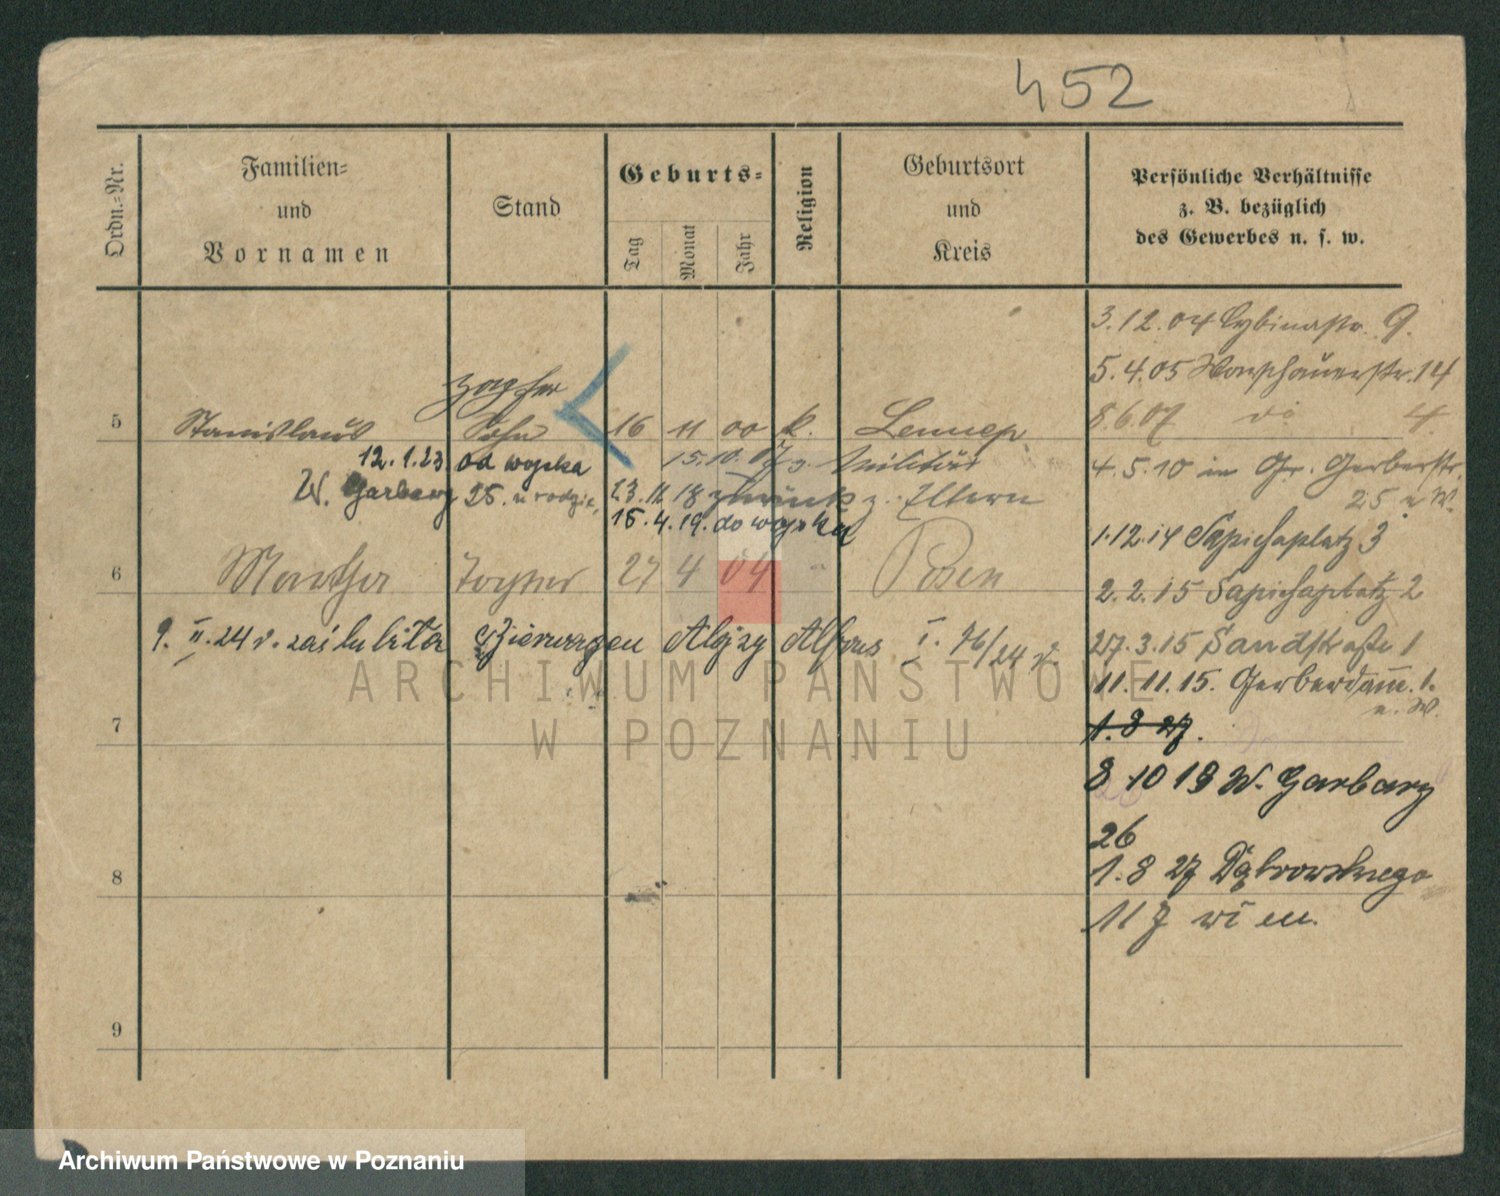 452
Ordn.-Nr.
Familien-
und
Vornamen
Stand
Geburts-
Tag
Monat
Jahr
Religion
Geburtsort
und
Kreis
Persönliche Verhältnisse
z. B. bezüglich
des Gewerbes u. s. w.
3.12.04 Cybinastr. 9.
5.4.05 Warschauerstr. 14
8.6.07 do 4.
4.5.10 in Gr. Gerberstr.
25 u W.
1.12.14 Sapiehaplatz 3
2.2.15 Sapiehaplatz 2
27.3.15 Sandstraße 1
11.11.15. Gerberdamm 1.
u. W.
1. 8 27.
8 10 19 W. Garbary
26
1. 8 27 Dąbrowskiego
117
5 Stanislaus Sohn 16 11 00 k. Lennep
12.1.23 od wojska 15.10. Militär
W. Garbary 25. u rodzic. 23.12 18 zurück z. Eltern
15.4.19. do wojska
6 Martha Tochter 27 4 04 " Posen
9. II. 24 Bierwagen Alojzy Alfons I. 76/24
7
8
9
ARCHIWUM PAŃSTWOWE
W POZNANIU
Archiwum Państwowe w Poznaniu